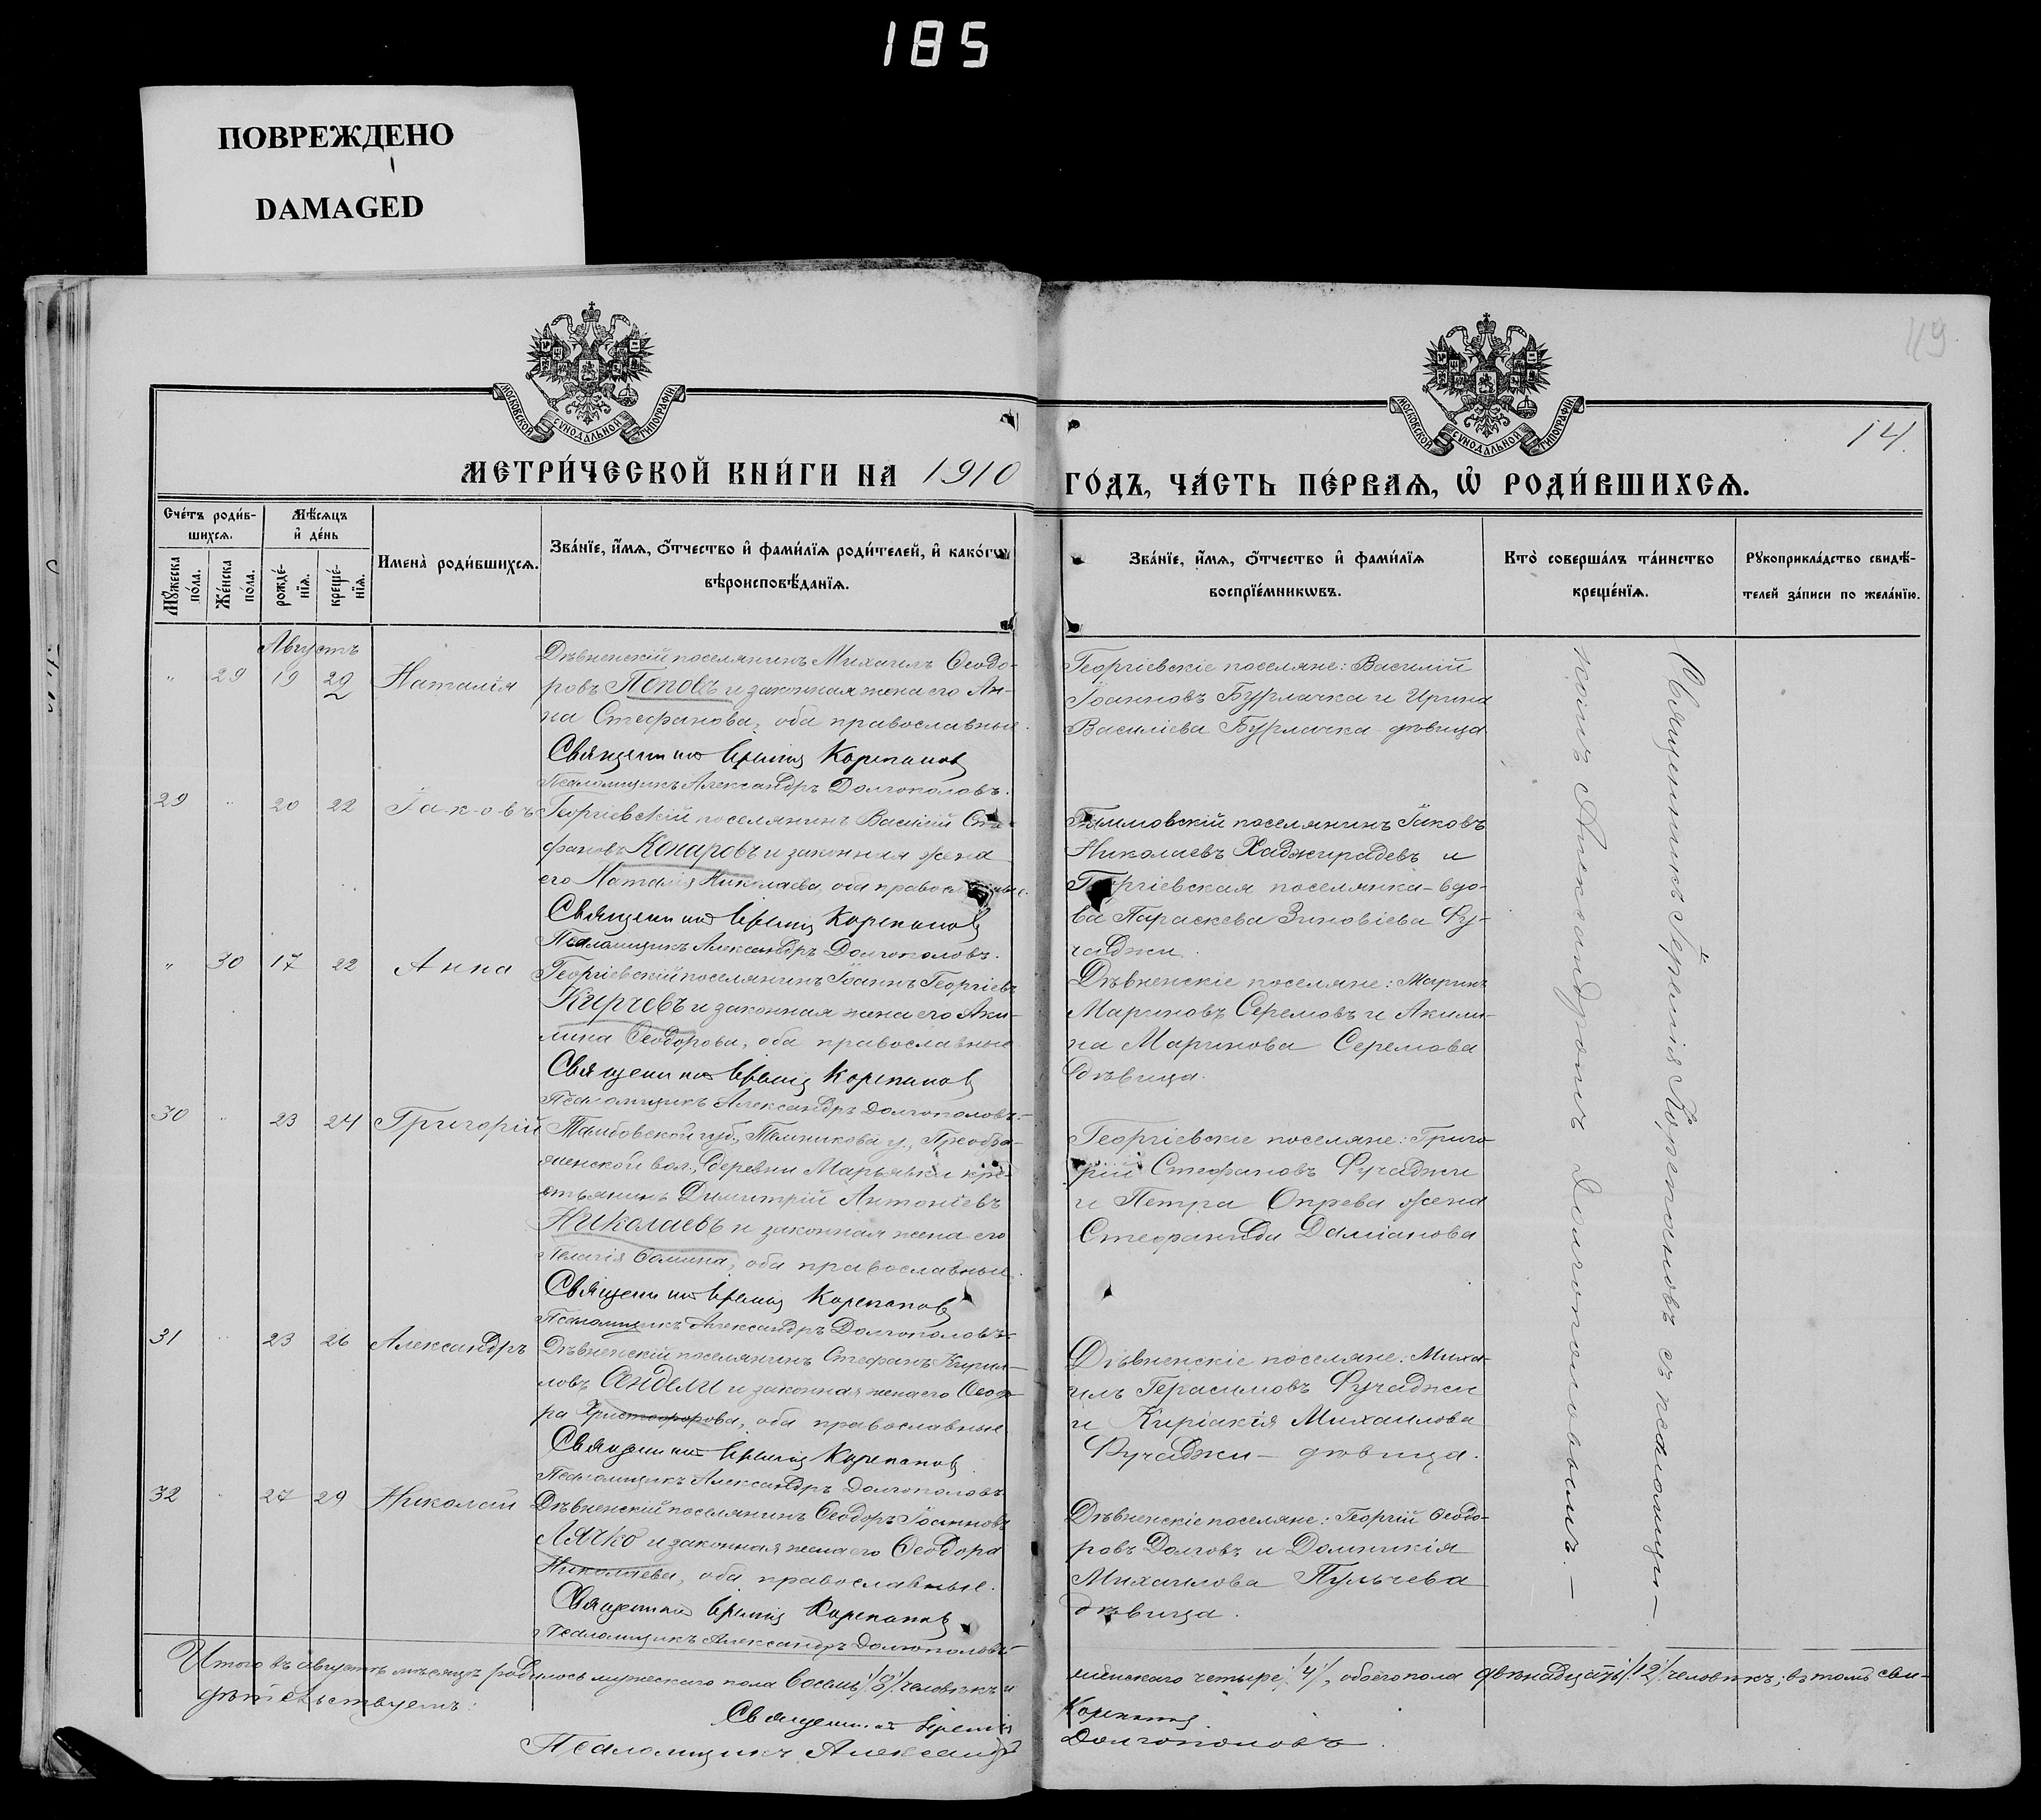 185
ПОВРЕЖДЕНО
DAMAGED
119
14.
МОСКОВСКОЙ СѴНОДАЛЬНОЙ ТИПОГРАФІИ
МОСКОВСКОЙ СѴНОДАЛЬНОЙ ТИПОГРАФІИ
МЕТРИ́ЧЕСКОЙ КНИ́ГИ НА 1910 ГО́ДЪ, ЧА́СТЬ ПЕ́РВАѦ, Ѡ҆ РОДИ́ВШИХСѦ.
Сче́тъ роди́в-
шихсѧ.
Мꙋжеска по́ла.
Же́нска по́ла.
Мѣ́сѧцъ
и҆ де́нь
рожде́-
нїѧ.
креще́-
нїѧ.
Имена̀ роди́вшихсѧ.
Зва́нїе, и҆́мѧ, ѻ҆́тчество и҆ фами́лїѧ роди́телей, и҆ како́гѡ
вѣроисповѣ́данїѧ.
Зва́нїе, и҆́мѧ, ѻ҆́тчество и҆ фами́лїѧ
воспрїе́мникѡвъ.
Кто̀ соверша́лъ та́инство
креще́нїѧ.
Рꙋкоприкла́дство свидѣ́-
телей за́писи по жела́нїю.
Августъ
" 29 19 29 Наталія
Дѣвненскій поселянинъ Михаилъ Ѳеодо-
ровъ Поповъ и законная жена его Ан-
на Стефанова, оба православные.
Священникъ Іеремія Корепановъ
Псаломщикъ Александръ Долгополовъ.
Георгіевскіе поселяне: Василій
Іоанновъ Бурлачка и Ирина
Василіева Бурлачка дѣвица
29 " 20 22 Іаковъ
Георгіевскій поселянинъ Василій Сте-
фановъ Кочаровъ и законная жена
его Наталія Николаева, оба православные.
Священникъ Іеремія Корепановъ
Псаломщикъ Александръ Долгополовъ.
поселянинъ Іаковъ
Николаевъ Хаджирадевъ и
Георгіевская поселянка-вдо-
ва Параскева Зиновіева Фу-
чаджи.
" 30 17 22 Анна
Георгіевскій поселянинъ Іоаннъ Георгіевъ
Кирчевъ и законная жена его Аки-
лина Ѳеодорова, оба православные
Священникъ Іеремія Корепановъ
Псаломщикъ Александръ Долгополовъ.
Дѣвненскіе поселяне: Маринъ
Мариновъ Серемовъ и Акили-
на Маринова Серемова
дѣвица.
30 " 23 24 Григорій
Тамбовской губ., Темниковa у., Преобра-
женской вол., деревни Марьяньки кре-
стьянинъ Димитрій Антоніевъ
Николаевъ и законная жена его
Пелагія Ѳомина, оба православные.
Священникъ Іеремія Корепановъ
Псаломщикъ Александръ Долгополовъ.
Георгіевскіе поселяне: Григо-
рій Стефановъ Фучаджи
и Петра Опрева жена
Стефанида Даміанова
31 " 23 26 Александръ
Дѣвненскій поселянинъ Стефанъ Кирил-
ловъ Ангели и законная жена его Ѳеодо-
ра Христофорова, оба православные
Священникъ Іеремія Корепановъ
Псаломщикъ Александръ Долгополовъ
Дѣвненскіе поселяне: Миха-
илъ Герасимовъ Фучаджи
и Киріакія Михаилова
Фучаджи - дѣвица.
32 " 27 29 Николай
Дѣвненскій поселянинъ Ѳеодоръ Іоанновъ
Лячко и законная жена его Ѳеодора
Николаева, оба православные.
Священникъ Іеремія Корепановъ
Псаломщикъ Александръ Долгополовъ
Дѣвненскіе поселяне: Георгій Ѳеодо-
ровъ Долговъ и Домникія
Михаилова Пульчева
дѣвица.
Священникъ Іеремія Корепановъ съ псаломщи-
комъ Александромъ Долгополовымъ. -
Итого въ августѣ мѣсяцѣ родилось мужескаго пола восемь /8/ человѣкъ и женскаго четыре /4/, обоего пола двѣнадцать /12/ человѣкъ; въ томъ сви-
дѣтельствуемъ:
Священникъ Іеремія Корепановъ.
Псаломщикъ Александръ Долгополовъ.